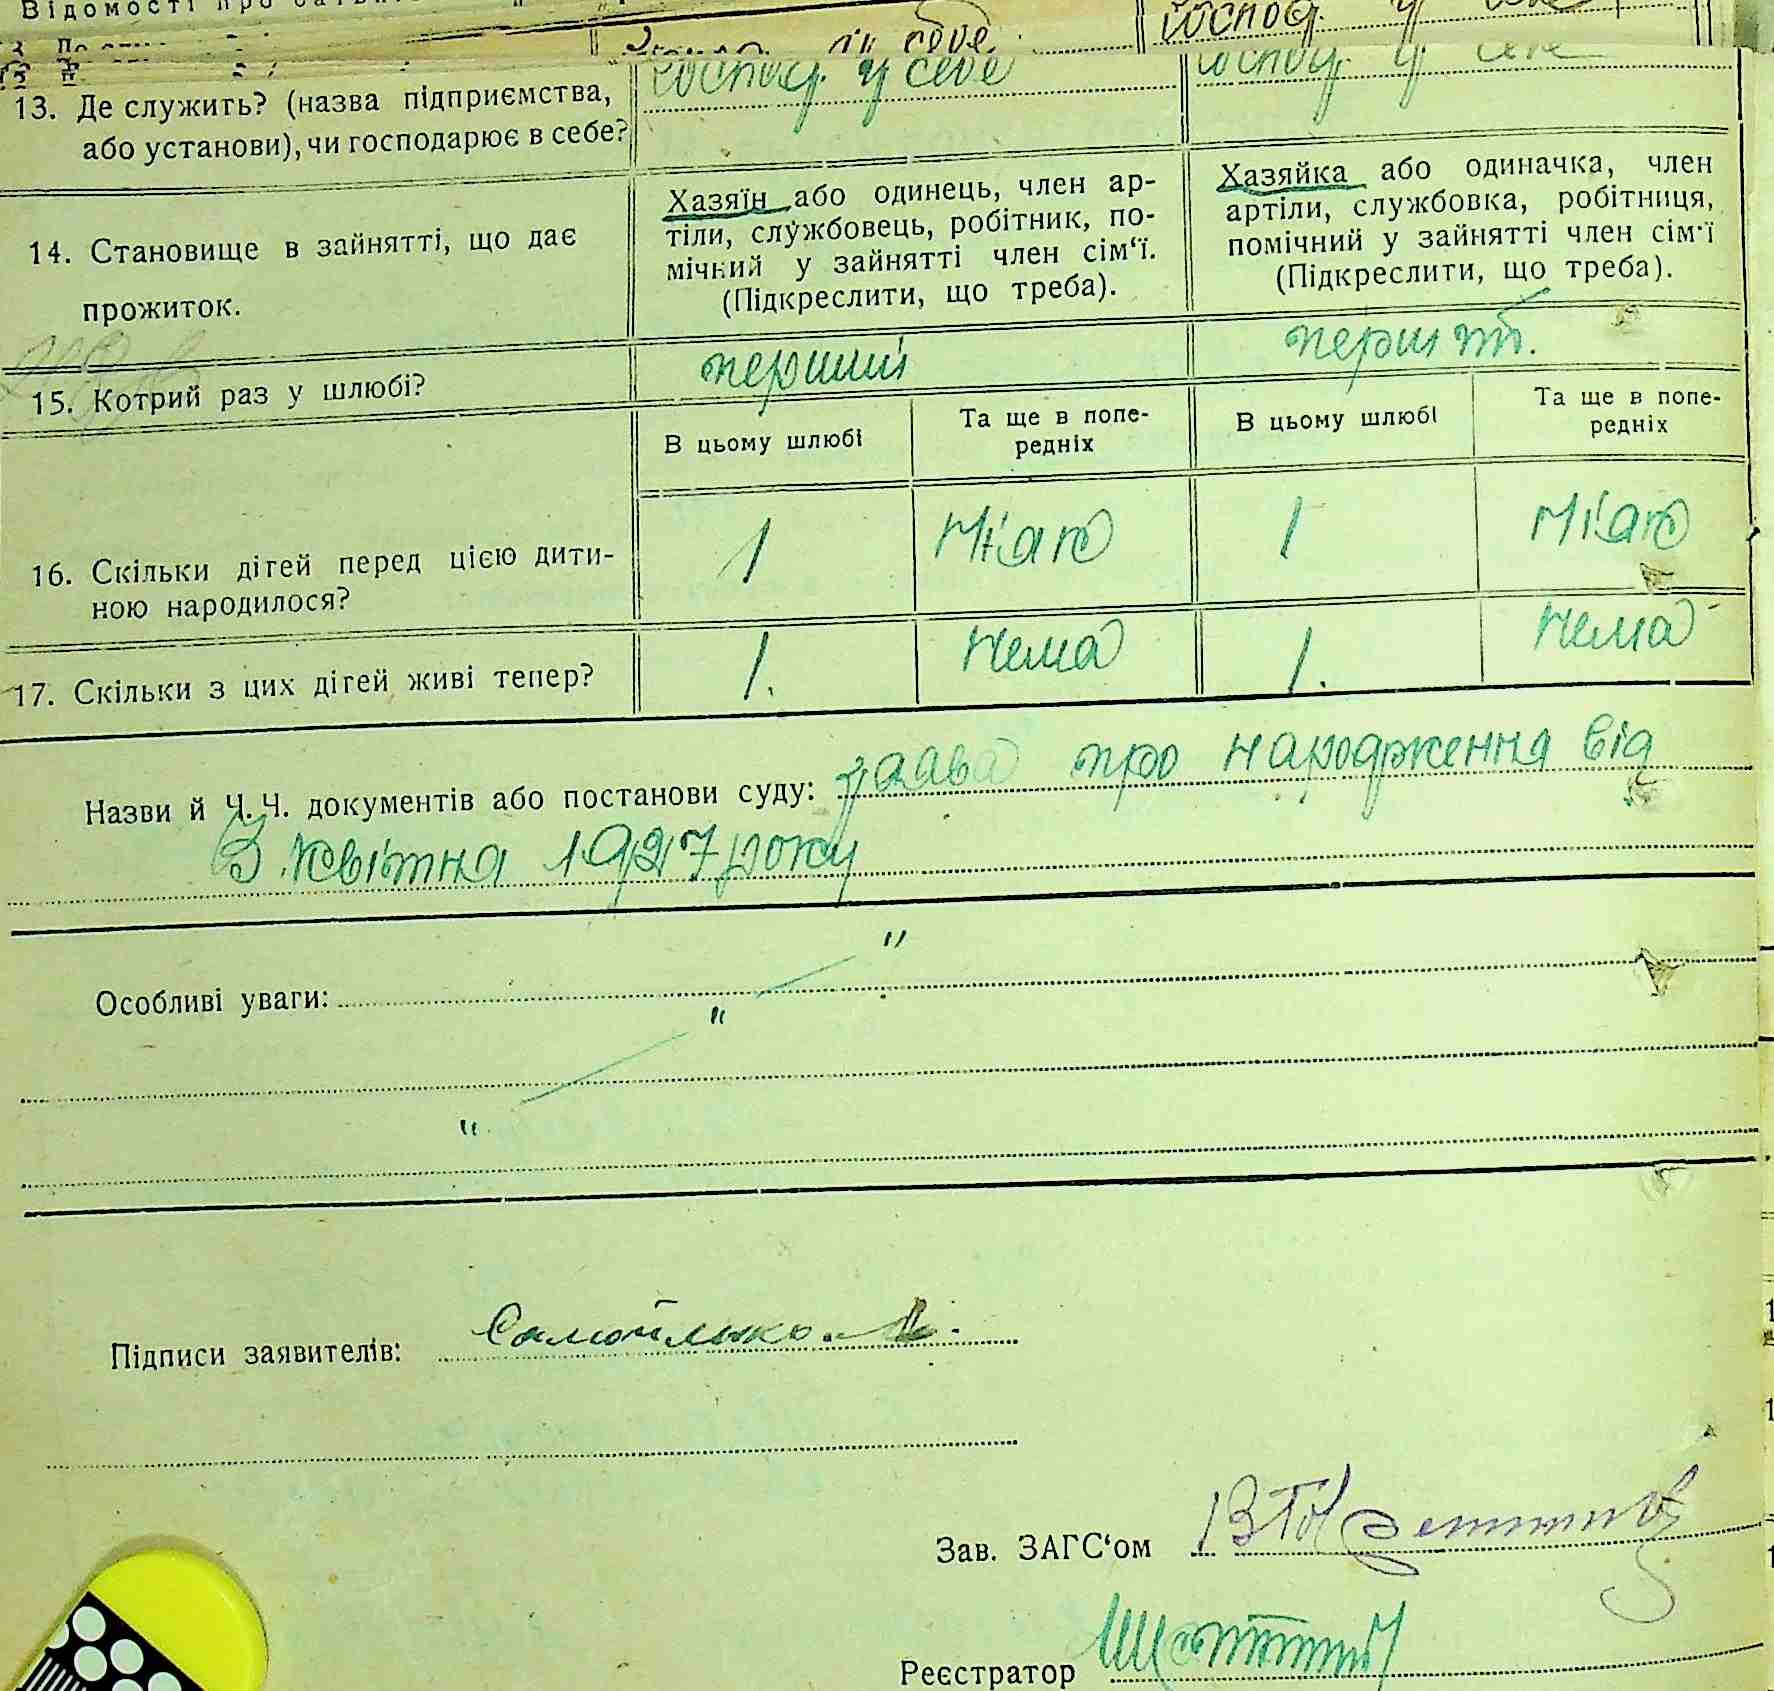 Відомості про
13. Де служить? (назва підприємства, або установи), чи господарює в себе?
господ. у себе
господ. у себе
14. Становище в зайнятті, що дає прожиток.
Хазяїн або одинець, член ар-
тіли, службовець, робітник, по-
мічний у зайнятті член сім‘ї.
(Підкреслити, що треба).
Хазяйка або одиначка, член
артіли, службовка, робітниця,
помічний у зайнятті член сім‘ї
(Підкреслити, що треба).
15. Котрий раз у шлюбі?
перший
перший.
В цьому шлюбі
Та ще в попе-
редніх
В цьому шлюбі
Та ще в попе-
редніх
16. Скільки дітей перед цією дити-
ною народилося?
1
1
17. Скільки з цих дітей живі тепер?
1.
нема
1.
нема
Назви й Ч.Ч. документів або постанови суду: заява про народження від
3 квітня 1927 року
Особливі уваги:
Підписи заявителів: Самойленко.
Зав. ЗАГС‘ом
Реєстратор